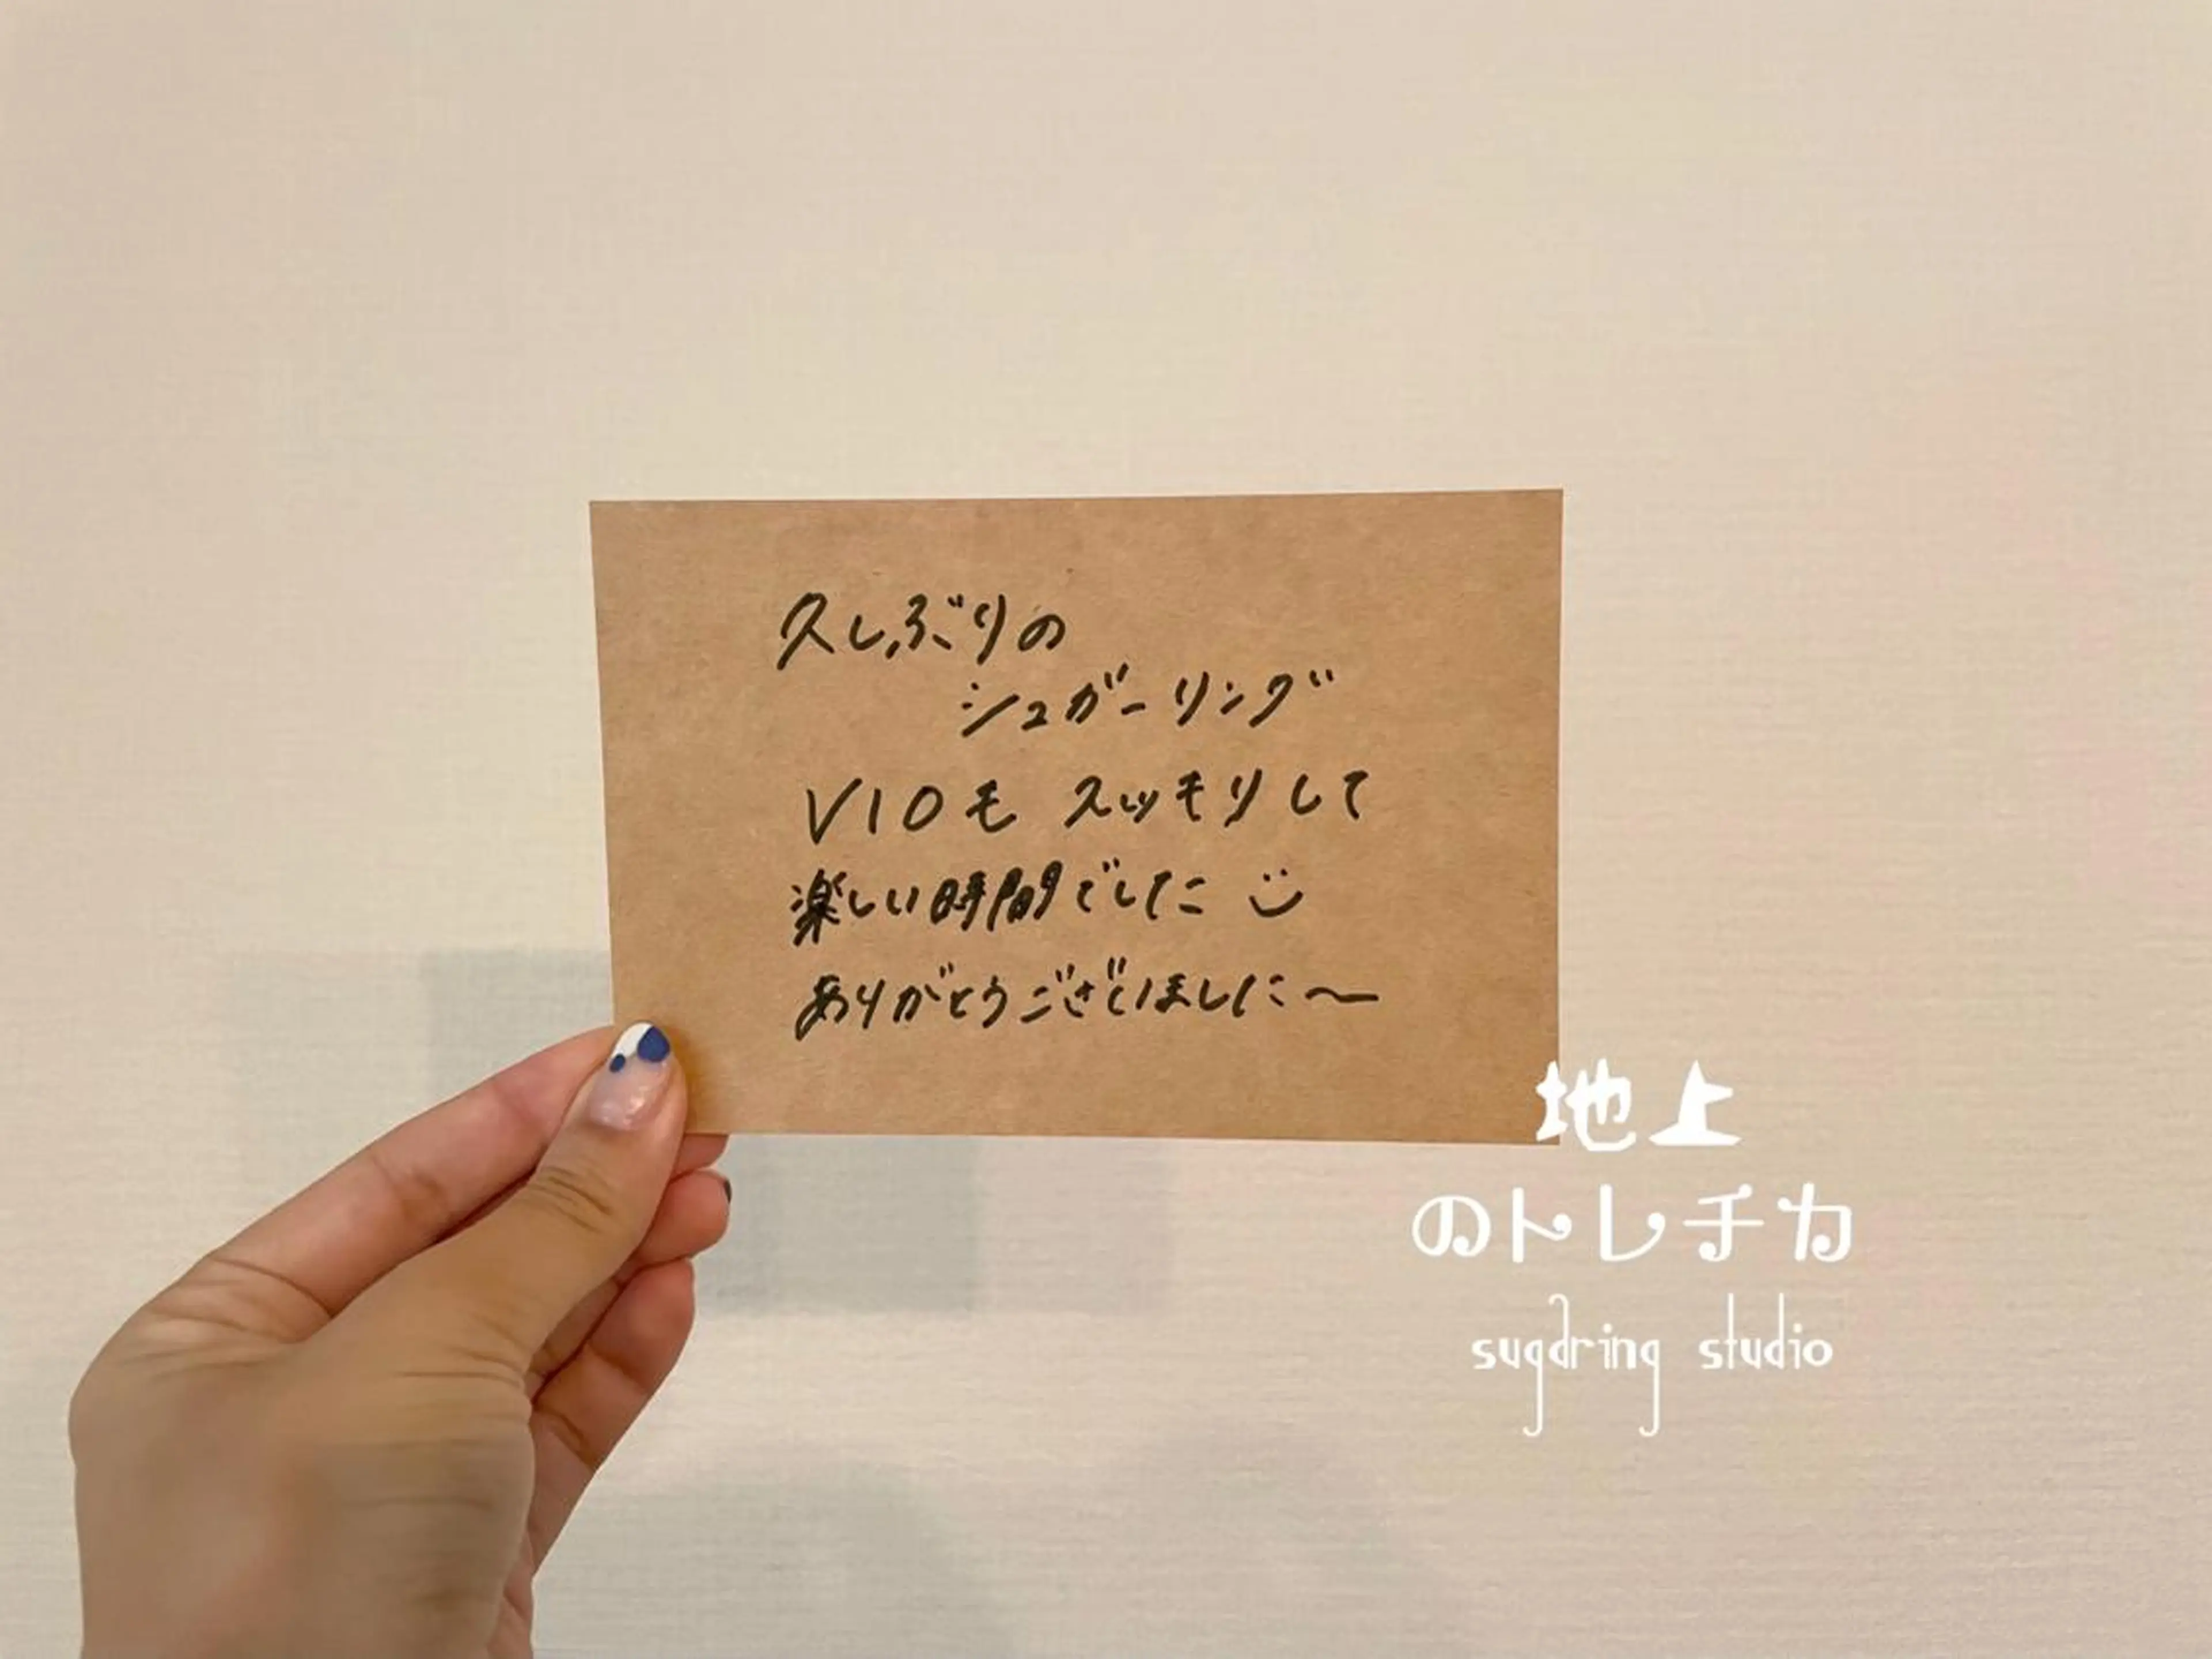 久しぶりの
シュガーリング
VIOも スッキリして
楽しい時間でした
ありがとうございました〜
地上
のトレチカ
sugaring studio